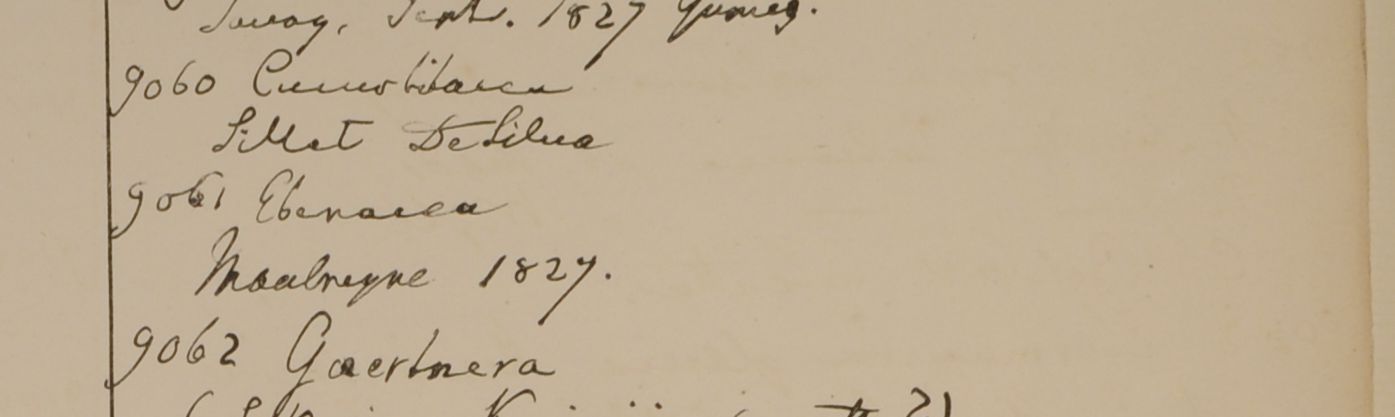 Tavoy, Sept. 1827 Gomez.
9060 Cucurbitacea
Sillet DeSilva
9061 Ebenacea
Moalmeyne 1827.
9062 Gaertnera